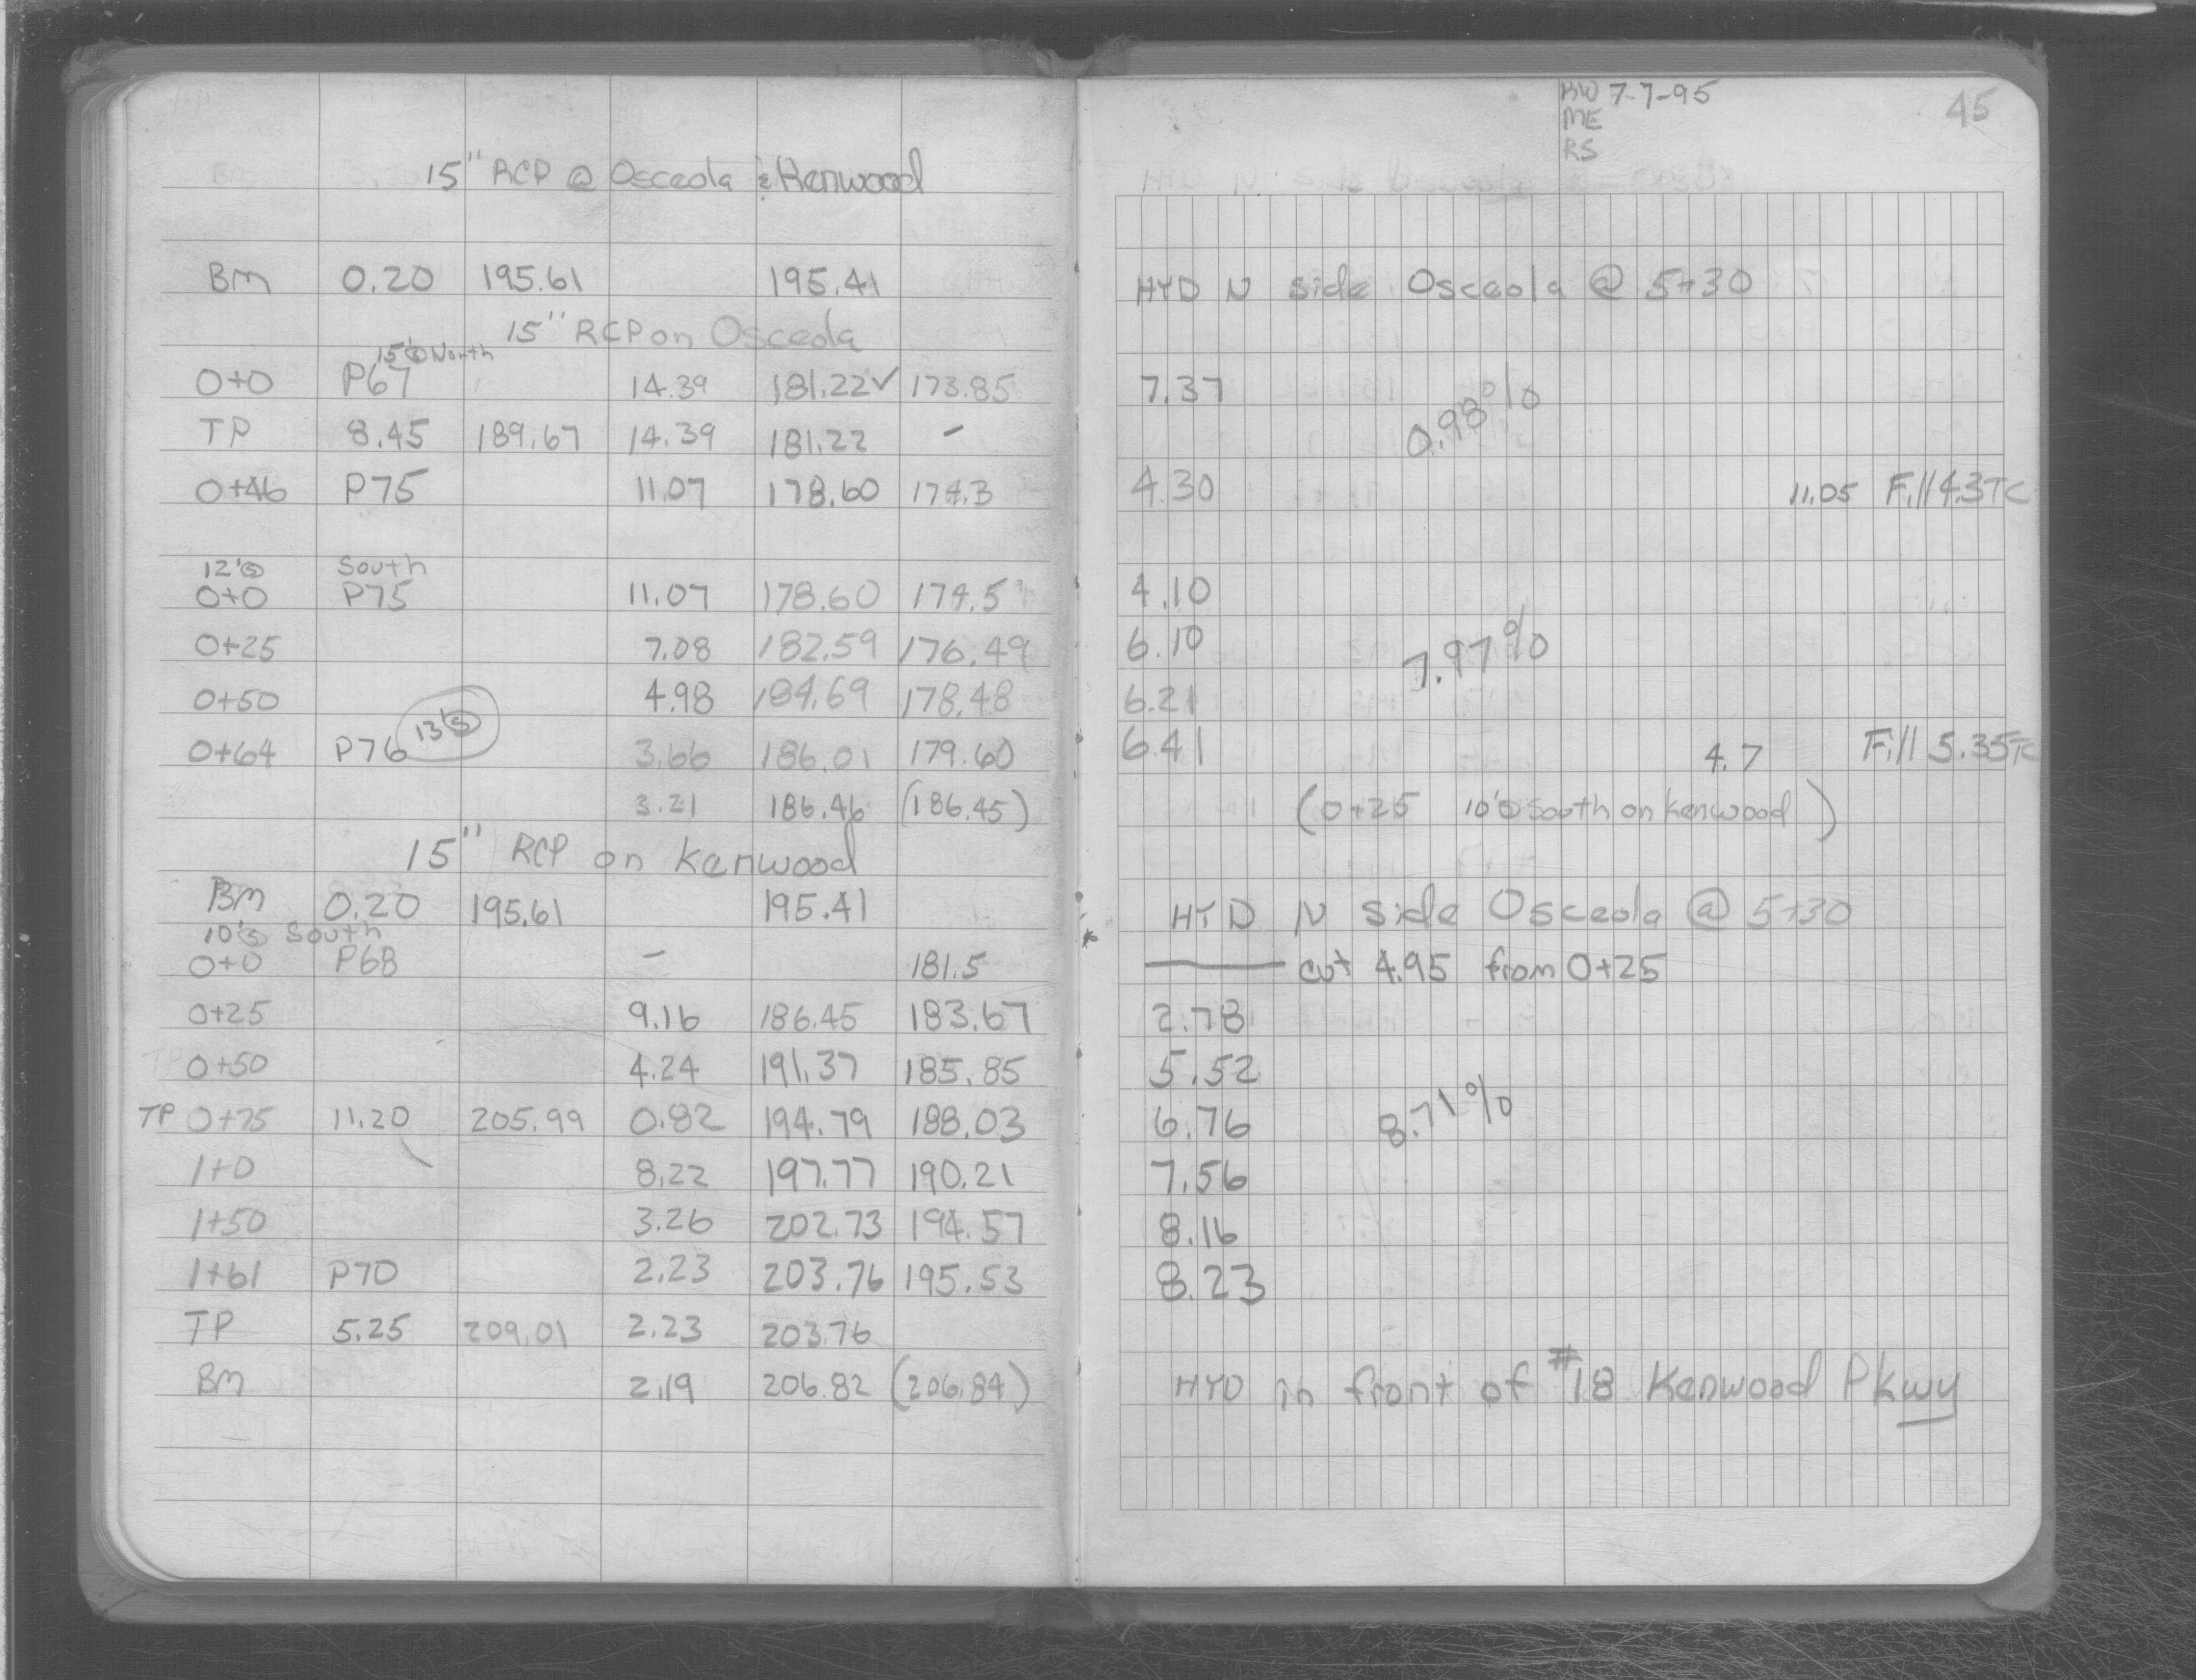 BW 7-7-95
ME
RS
45
15" RCP @ Osceola & Kenwood
BM 0.20 195.61 195.41 HYD N side Osceola @ 5+30
15" RCP on Osceola
15'Ⓢ North
0+0 P67 14.39 181.22✓ 173.85 7.37
0.98%
TP 8.45 189.67 14.39 181.22 -
0+46 P75 11.07 178.60 174.3 4.30 11.05 Fill 4.3 TC
12'Ⓢ South
0+0 P75 11.07 178.60 174.5 4.10
0+25 7.08 182.59 176.49 6.10
7.97%
0+50 4.98 184.69 178.48 6.21
0+64 P76 13'Ⓢ 3.66 186.01 179.60 6.41 4.7 Fill 5.35 TC
3.21 186.46 (186.45) (0+25 10'Ⓢ South on Kenwood)
15" RCP on Kenwood
BM 0.20 195.61 195.41 HYD N side Osceola @ 5+30
10'Ⓢ South
0+0 P68 - 181.5 cut 4.95 from 0+25
0+25 9.16 186.45 183.67 2.78
TP 0+50 4.24 191.37 185.85 5.52
TP 0+75 11.20 205.99 0.82 194.79 188.03 6.76
8.71%
1+0 8.22 197.77 190.21 7.56
1+50 3.26 202.73 194.57 8.16
1+61 P70 2.23 203.76 195.53 8.23
TP 5.25 209.01 2.23 203.76
BM 2.19 206.82 (206.84) HYD in front of #18 Kenwood Pkwy